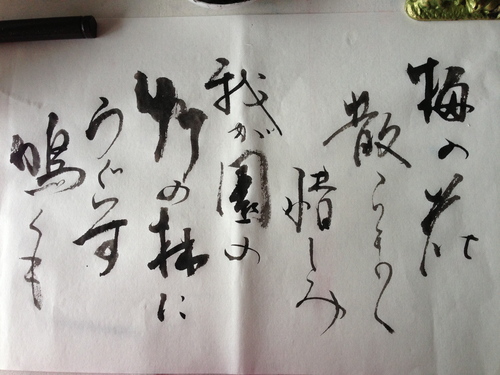 梅の花
散らまく
惜しみ
我が園の
竹の林に
うぐひす
鳴くも